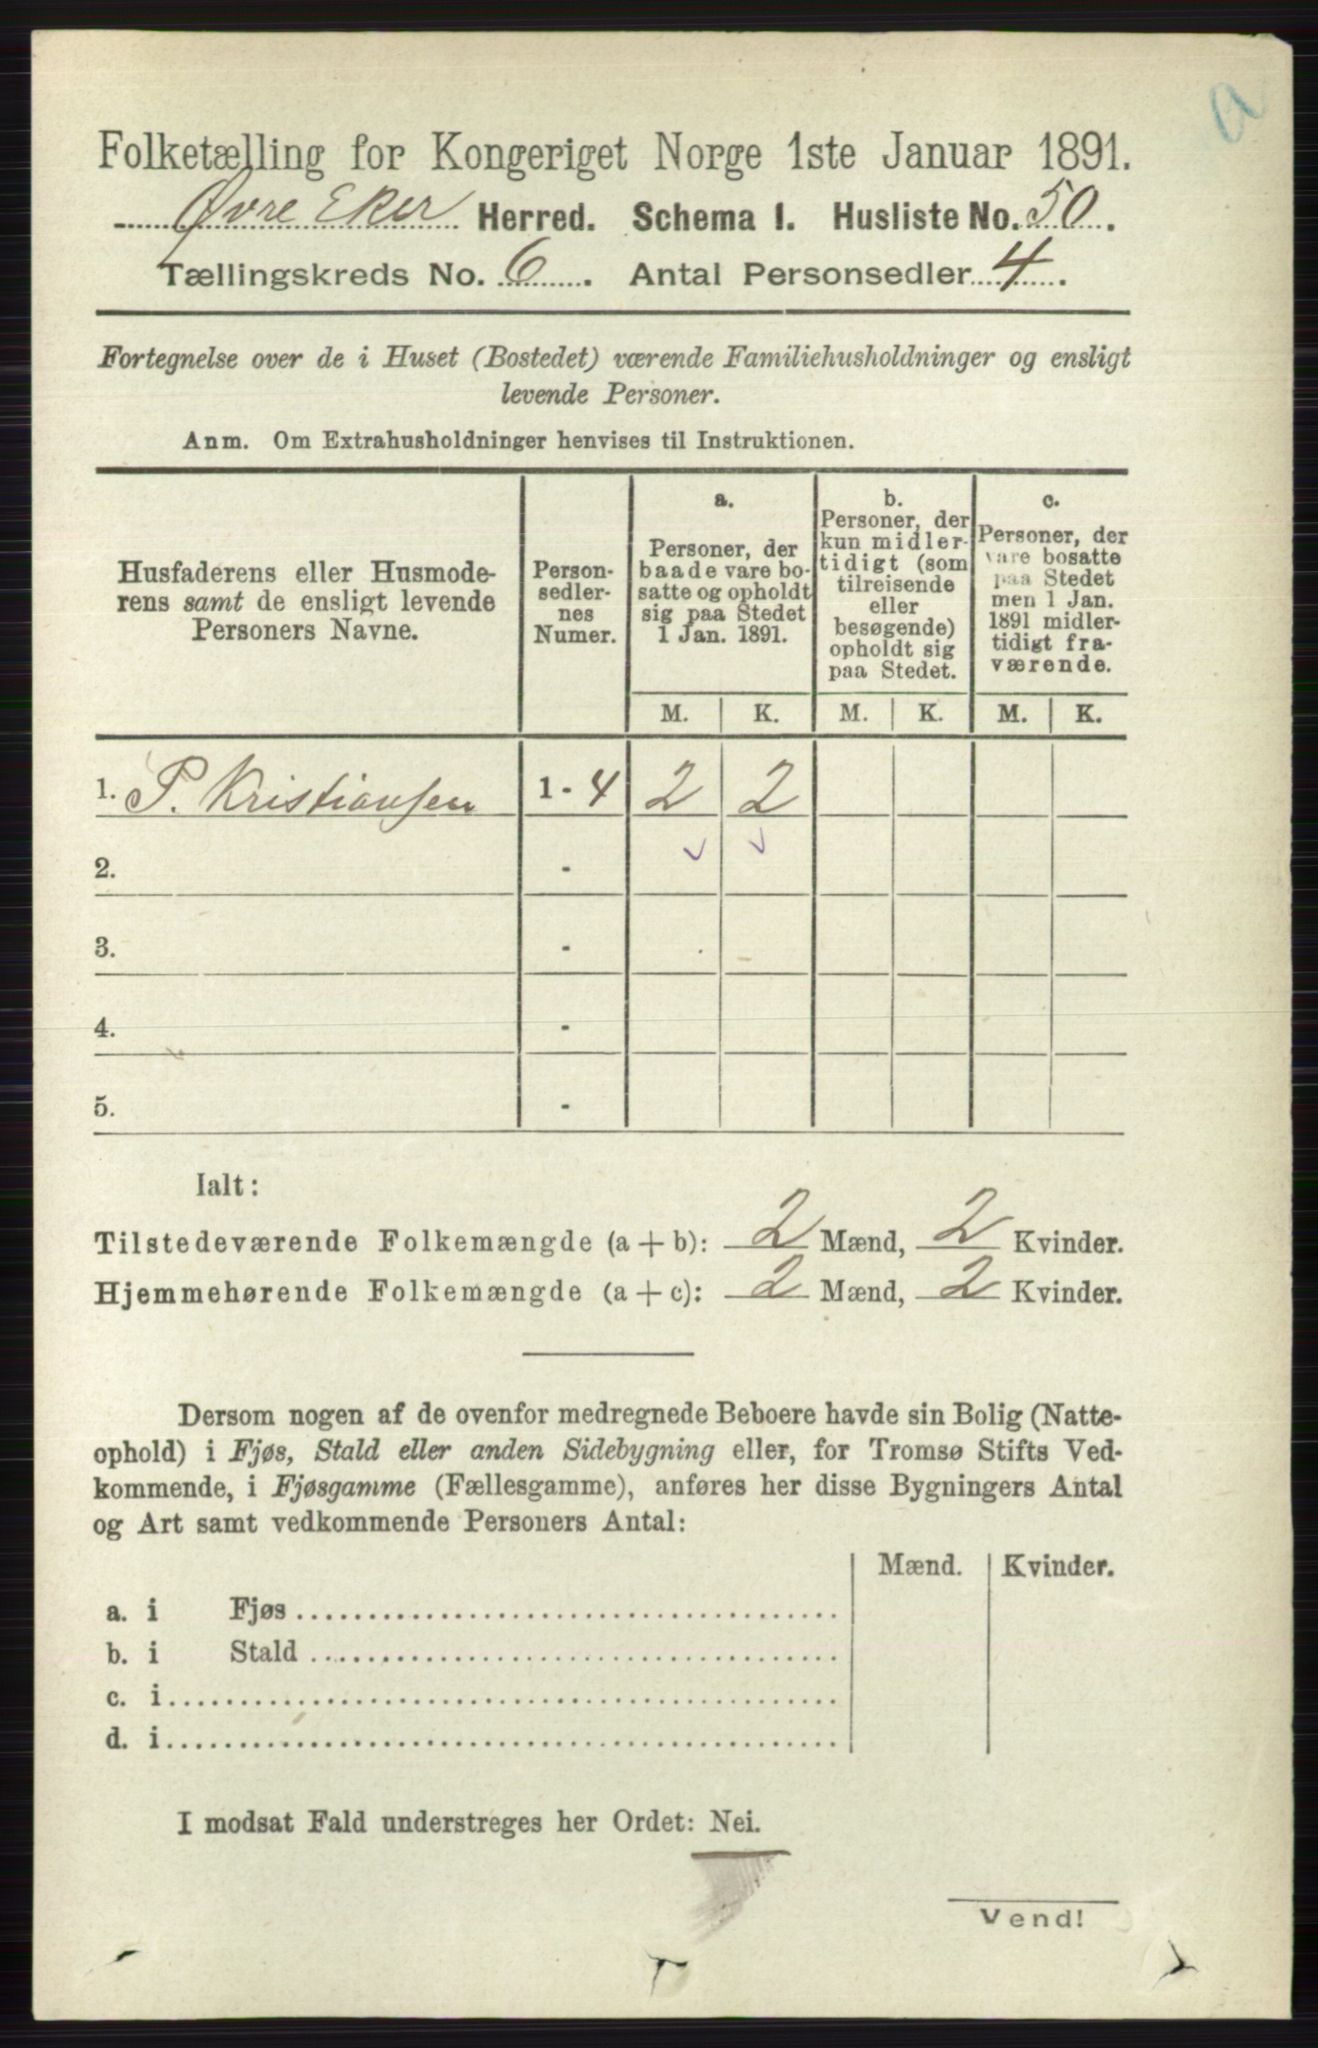 a
Folketælling for Kongeriget Norge 1ste Januar 1891.
Øvre Eker Herred. Schema 1. Husliste No. 50.
Tællingskreds No. 6. Antal Personsedler 4.
Fortegnelse over de i Huset (Bostedet) værende Familiehusholdninger og ensligt
levende Personer.
Anm. Om Extrahusholdninger henvises til Instruktionen.
Husfaderens eller Husmode-
rens samt de ensligt levende
Personers Navne.
Person-
sedler-
nes
Numer.
a.
Personer, der
baade vare bo-
satte og opholdt
sig paa Stedet
1 Jan. 1891.
b.
Personer, der
kun midler-
tidigt (som
tilreisende
eller
besøgende)
opholdt sig
paa Stedet.
c.
Personer, der
vare bosatte
paa Stedet
men 1 Jan.
1891 midler-
tidigt fra-
værende.
M. K. M. K. M. K.
1. P. Kristiansen 1 - 4 2 2
2. -
3. -
4. -
5. -
Ialt:
Tilstedeværende Folkemængde (a + b): 2 Mænd, 2 Kvinder.
Hjemmehørende Folkemængde (a + c): 2 Mænd, 2 Kvinder.
Dersom nogen af de ovenfor medregnede Beboere havde sin Bolig (Natte-
ophold) i Fjøs, Stald eller anden Sidebygning eller, for Tromsø Stifts Ved-
kommende, i Fjøsgamme (Fællesgamme), anføres her disse Bygningers Antal
og Art samt vedkommende Personers Antal:
Mænd. Kvinder.
a. i Fjøs
b. i Stald
c. i
d. i
I modsat Fald understreges her Ordet: Nei.
Vend!